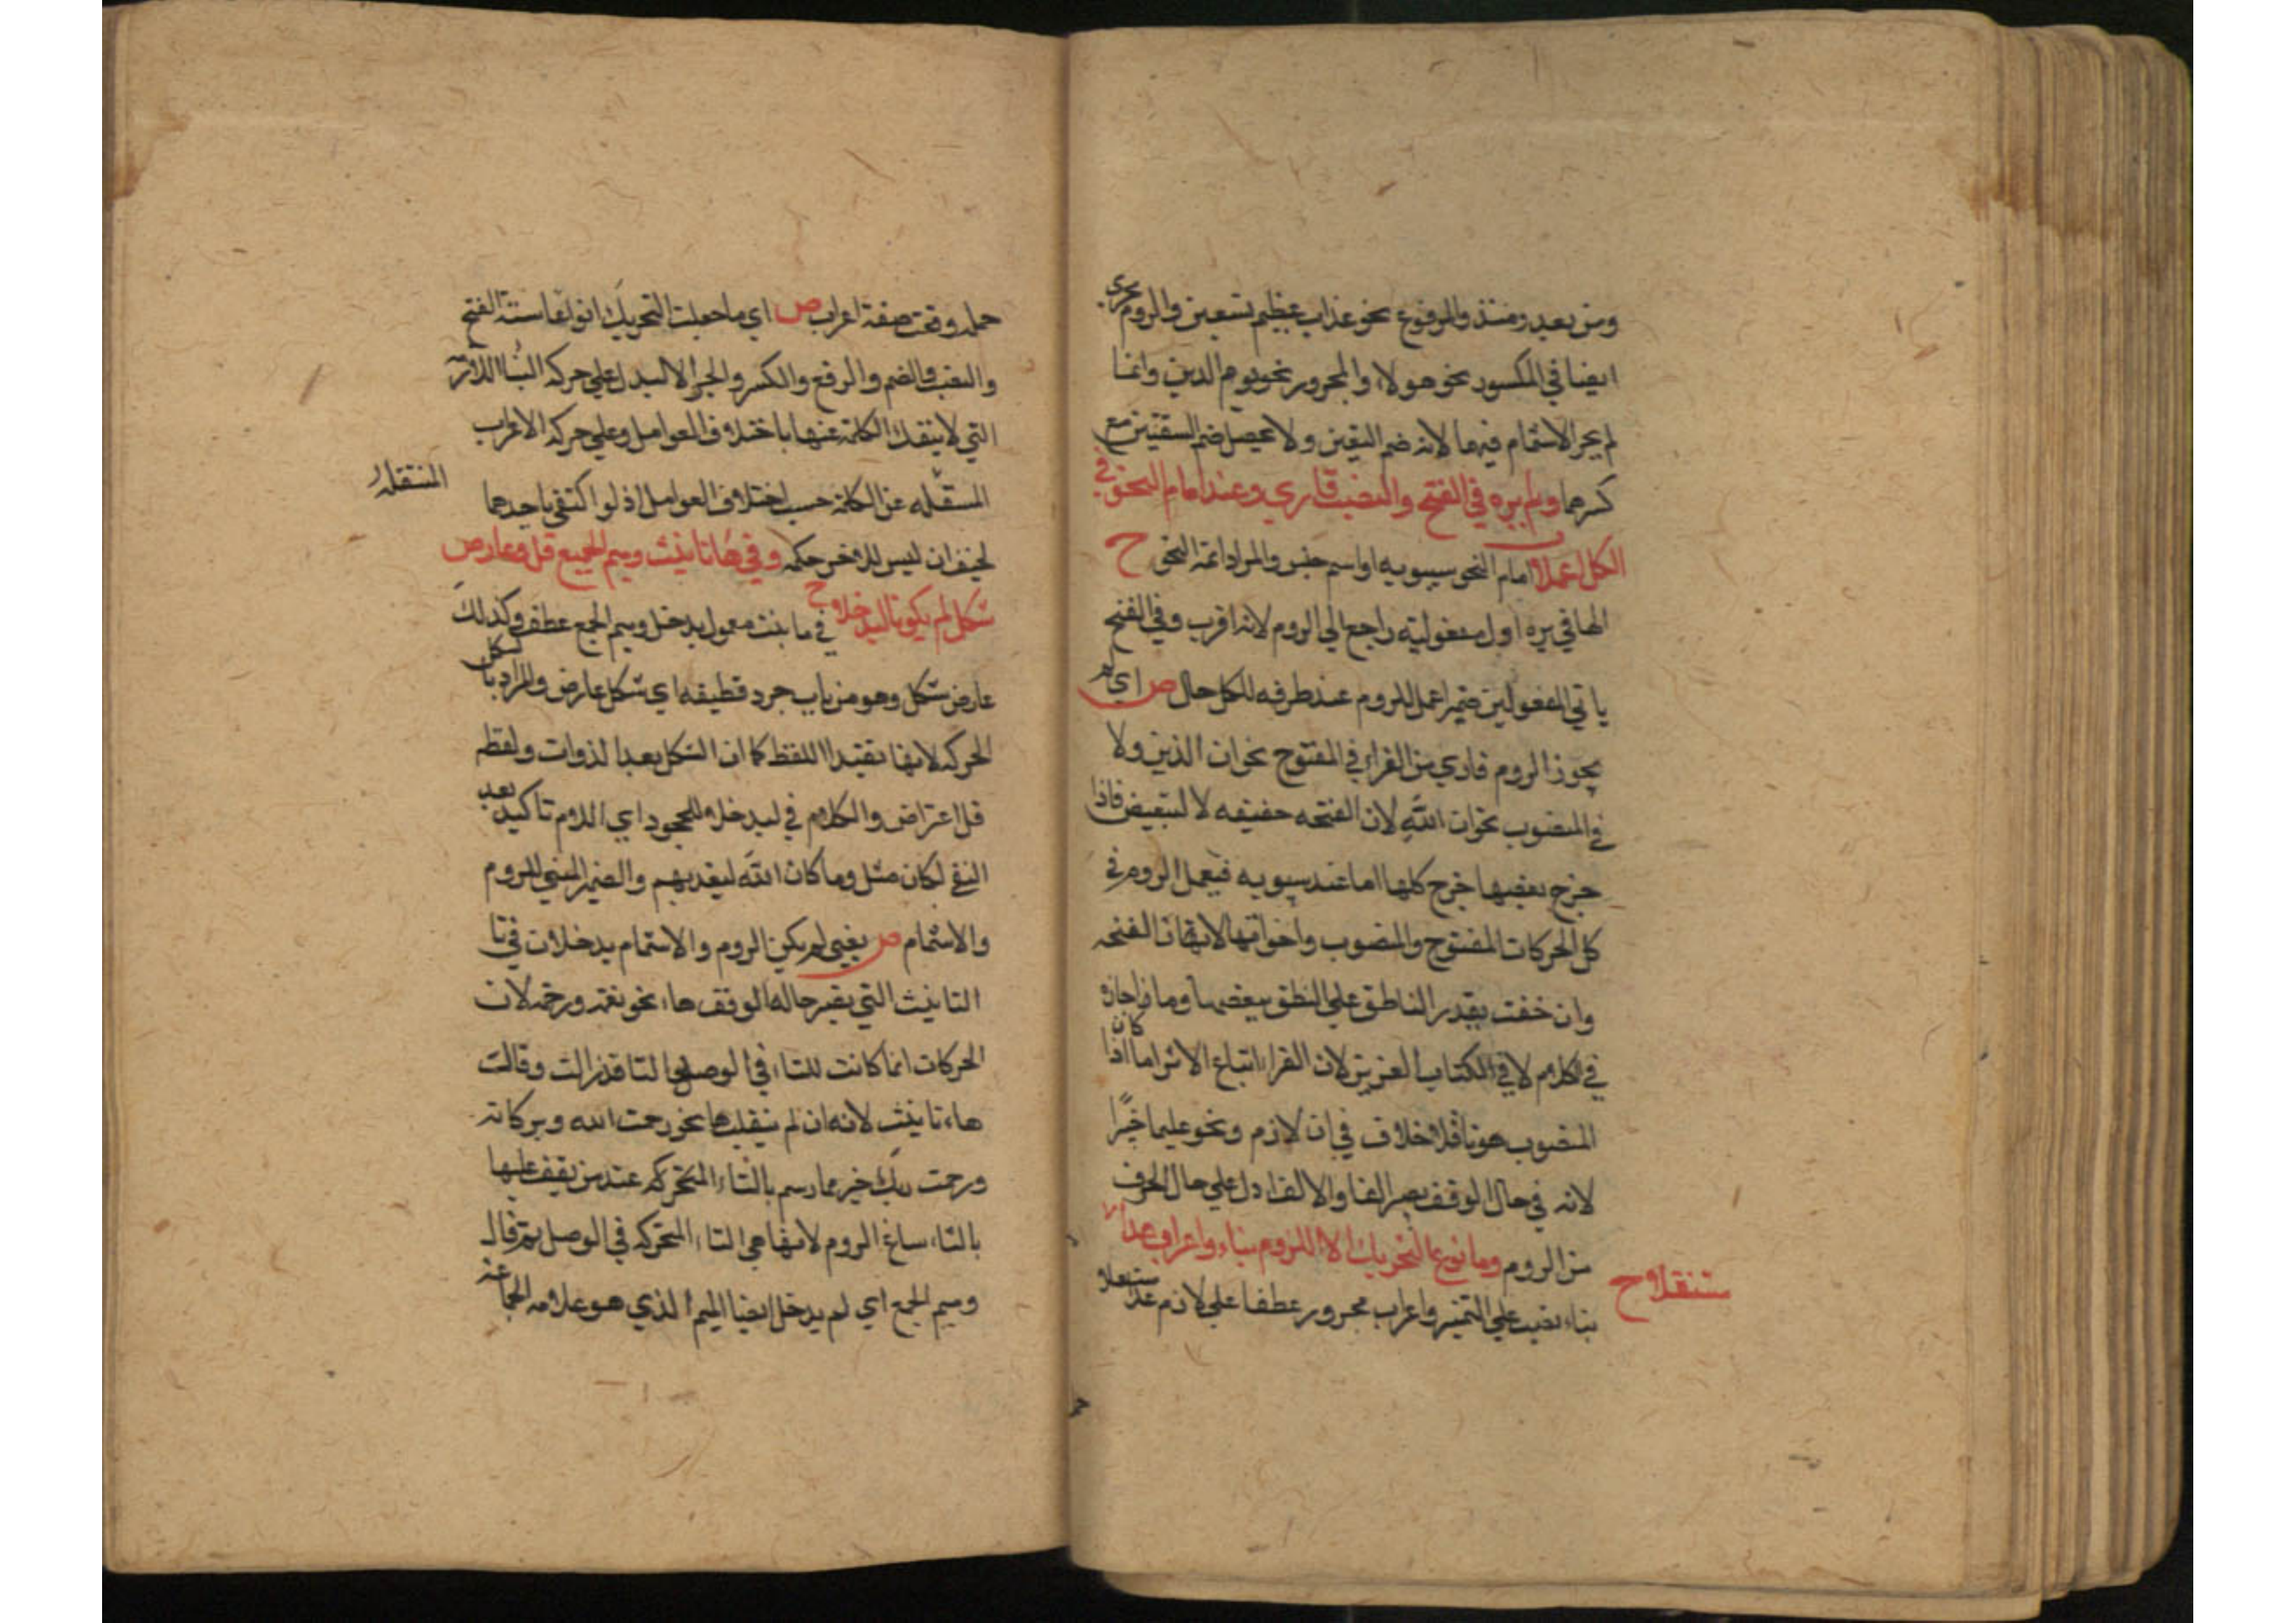 ومن بعيد ومنذ والمرفوع نحو عذاب عظيم نستعين والروم يجري
ايضا في المكسور نحو هولاء والمجرور نحو يوم الدين وانما
لم يجر الاشمام فيهما لانه ضم الشفتين ولا يحصل ضم الشفتين مع
كسرهما ولم يره في الفتح والنصب قاري وعند امام النحو في
الكل اعملا امام النحو سيبويه او اسم جنس والمراد ائمة النحو ح
الها في يره اول مفعوليه راجع الي الروم لانه اقرب وفي الفتح
ياتي المفعولين ضمير اعمل للروم عند طرفه للكل حال ص اي لم
يجوز الروم قاري من القراء في المفتوح نحو ان الذين ولا
في المنصوب نحو ان الله لان الفتحه خفيفه لا تتبعض فاذا
خرج بعضها خرج كلها اما عند سيبويه فيعمل الروم في
كل الحركات المفتوح والمنصوب واخواتها لانها ان الفتحه
وان خفت يقدر الناطق علي النطق ببعضها وما اجازه
في الكلام لا في الكتاب العزيز لان القراء اتباع الاثر اما اذا كان
المنصوب منونا فلا خلاف في ان لازم ونحو عليما خبيرا
لانه في حال الوقف يصير الفا والالف دل علي حال الحرف
من الروم وما نوع التحريك الا للزوم بناء واعراب غدا
متنقلا ح
بناء نصب علي التمييز واعراب مجرور عطفا علي لازم غدا
جمله وقعت صفة اعراب ص اي ما جعلت التحريك انواعا ستة الفتح
والنصب والضم والرفع والكسر والجر الا ليدل علي حركة البناء اللازمة
التي لا ينفك الكلمة عنها باختلاف العوامل وعلي حركة الاعراب
المتنقله
المتنقله عن الكلمة حسب اختلاف العوامل اذ لو اكتفي باحدهما
لخيف ان ليس للاخر حكمه وفي هاء تانيث وميم الجميع قل وعارض
شكل لم يكونا ليدخلا ح في هاء تانيث معمول يدخل وميم الجمع عطف وكذلك
عارض شكل وهو من باب جرد قطيفه اي شكل عارض والمراد بالشكل
الحركه لانها تقيد اللفظ كما ان الشكل يعد الذوات ولفظ
قل اعتراض والكلام في ليدخلا للجحود اي اللام تاكيد بعد
النفي لكان مثل وما كان الله ليعذبهم والضمير المثني للروم
والاشمام ص يعني لم يكن الروم والاشمام يدخلان في تا
التانيث التي يصير حاله الوقف هاء نحو نعمه ورحمه لان
الحركات انما كانت للتاء في الوصل والتا قد زالت وقالت
هاء تانيث لانه ان لم ينقلب ها نحو رحمت الله وبركاته
ورحمت ربك خير مما رسم بالتاء المتحركه عند من يقف عليها
بالتاء ساغ الروم لانها هي التاء المتحركه في الوصل ثم قال
وميم الجمع اي لم يدخل ايضا الميم الذي هو علامه الجماعه